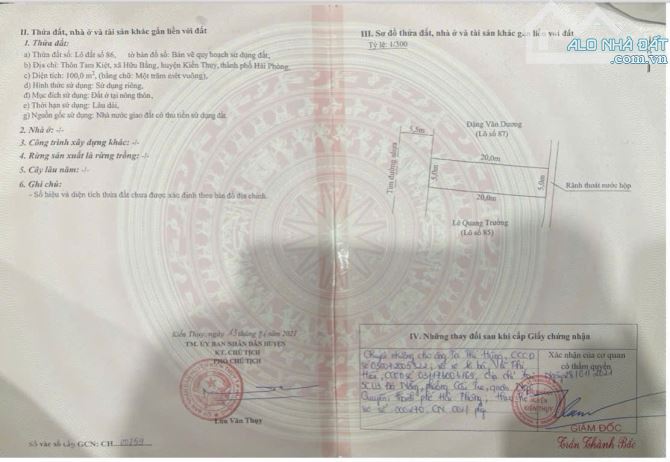 II. Thửa đất, nhà ở và tài sản khác gắn liền với đất
1. Thửa đất:
a) Thửa đất số: Lô đất số 86, tờ bản đồ số: Bản vẽ quy hoạch sử dụng đất,
b) Địa chỉ: Thôn Tam Kiệt, xã Hữu Bằng, huyện Kiến Thụy, thành phố Hải Phòng,
c) Diện tích: 100,0 m², (bằng chữ: Một trăm mét vuông),
d) Hình thức sử dụng: Sử dụng riêng,
đ) Mục đích sử dụng: Đất ở tại nông thôn,
e) Thời hạn sử dụng: Lâu dài,
g) Nguồn gốc sử dụng: Nhà nước giao đất có thu tiền sử dụng đất.
2. Nhà ở: -/-
3. Công trình xây dựng khác: -/-
4. Rừng sản xuất là rừng trồng: -/-
5. Cây lâu năm: -/-
6. Ghi chú:
- Số hiệu và diện tích thửa đất chưa được xác định theo bản đồ địa chính.
Kiến Thụy, ngày 13 tháng
TM. ỦY BAN NHÂN DÂN HUYỆN
KT. CHỦ TỊCH
PHÓ CHỦ TỊCH
Lưu Văn Thụy
Số vào sổ cấp GCN: CH
III. Sơ đồ thửa đất, nhà ở và tài sản khác gắn liền với đất
Tỷ lệ: 1/300
ALO NHÀ ĐẤT
.com.vn
5,5m
Đặng Văn Dương
(Lô số 87)
Tim đường nhựa
20,0m
5,0m
5,0m
20,0m
Rãnh thoát nước hộp
Lê Quang Trường
(Lô số 85)
IV. Những thay đổi sau khi cấp Giấy chứng nhận
Xác nhận của cơ quan
có thẩm quyền
Chuyển nhượng cho ông Tạ Hà Hưng, CCCD
GIÁM ĐỐC
Trần Thành Bắc